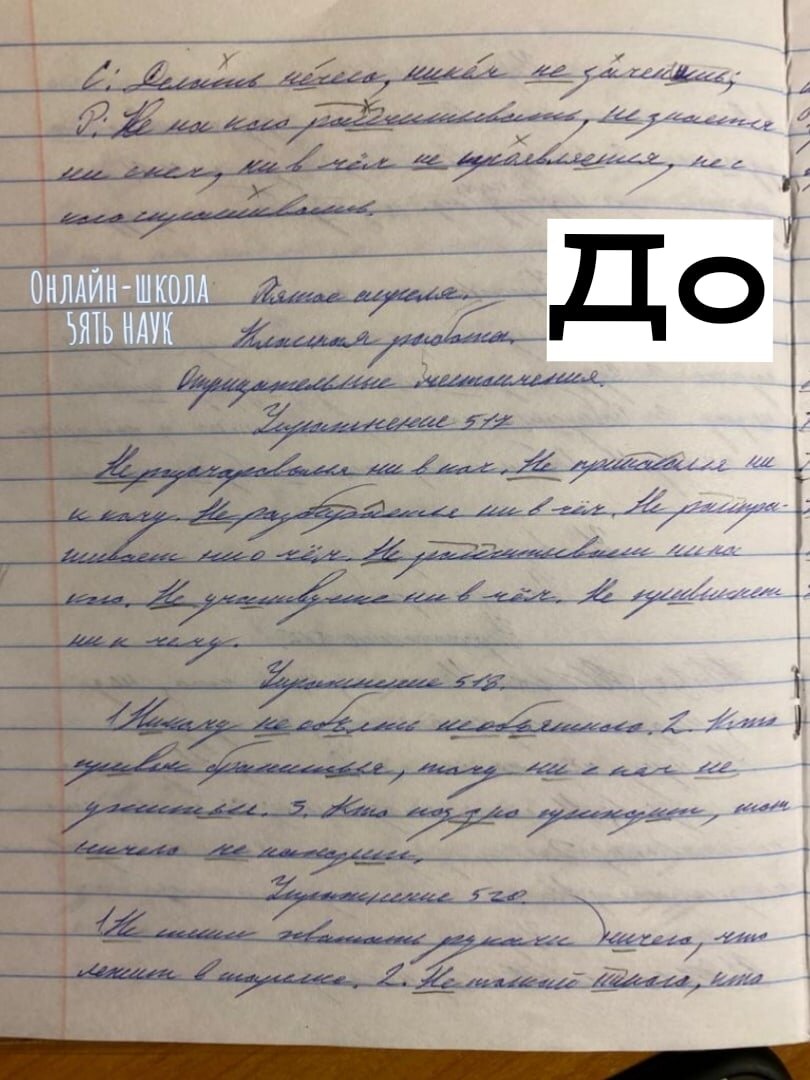 С: Делать нечего, никем не замечены;
Р: Не на кого рассчитывать, не знается
ни с кем, ни в чём не проявляется, не с
кого спрашивать.
До
ОНЛАЙН-ШКОЛА
5ЯТЬ НАУК
Пятое апреля.
Классная работа.
Отрицательные местоимения.
Упражнение 517
Не разочаровался ни в ком. Не придирался ни
к кому. Не разбираетесь ни в чём. Не расспра-
шивает ни о чём. Не рассчитывает ни на
кого. Не участвуете ни в чём. Не привыкает
ни к чему.
Упражнение 518.
1 Никому не объять необъятного. 2. Кто
привык браниться, тому ни с кем не
ужиться. 3. Кто поздно приходит, тот
ничего не находит.
Упражнение 520.
1 Не смей хватать руками ничего, что
лежит в тарелке. 2. Не толкай никого, кто